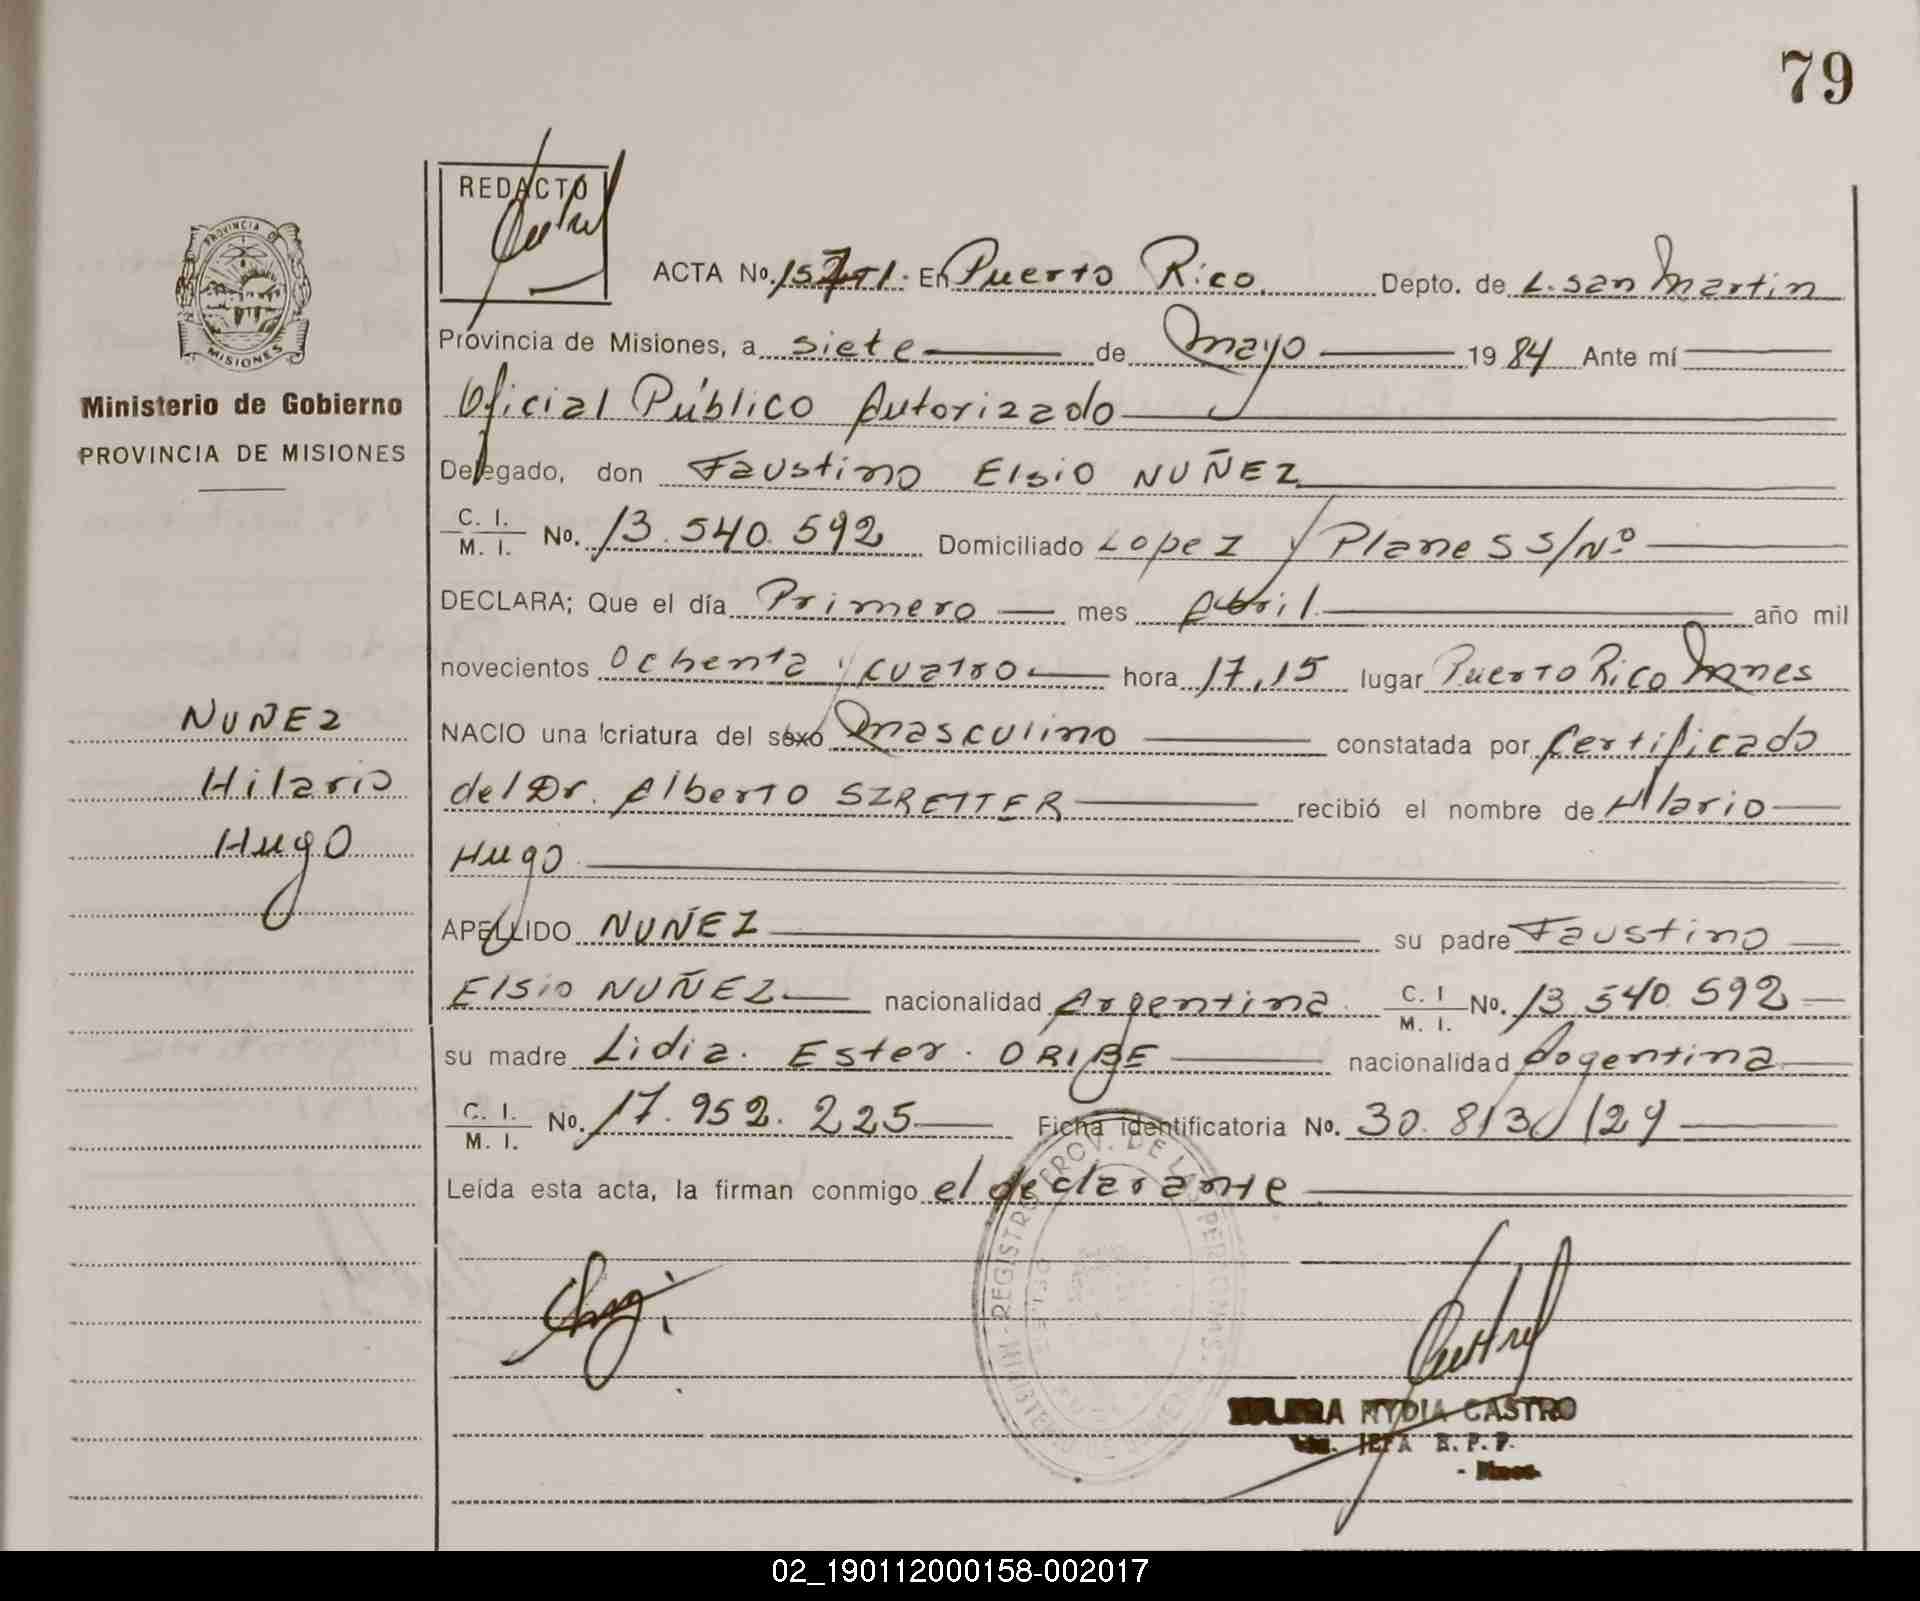 79
REDACTO
PROVINCIA DE
MISIONES
Ministerio de Gobierno
PROVINCIA DE MISIONES
NUÑEZ
Hilario
Hugo
ACTA No. En Puerto Rico. Depto. de L. san Martin
Provincia de Misiones, a siete de Mayo 1984 Ante mí
Oficial Público Autorizado
Delegado, don Faustino Elsio NUÑEZ
C. I. M. I. No. 13.540.592 Domiciliado Lopez y Planes S/Nº
DECLARA; Que el día Primero mes Abril año mil
novecientos Ochenta y cuatro hora 17,15 lugar Puerto Rico Mnes
NACIO una criatura del sexo Masculino constatada por Certificado
del Dr. Alberto SZRETTER recibió el nombre de Hilario
Hugo
APELLIDO NUÑEZ su padre Faustino
Elsio NUÑEZ nacionalidad Argentina. C. I M. I. No. 13.540.592
su madre Lidia. Ester. ORIBE nacionalidad Argentina
C. I. M. I. No. 17.952.225 Ficha identificatoria No. 30.813/129
Leída esta acta, la firman conmigo el declarante
REGISTRO PROV. DE LAS PERSONAS
NYDIA CASTRO
JEFA R. P. P.
02_190112000158-002017